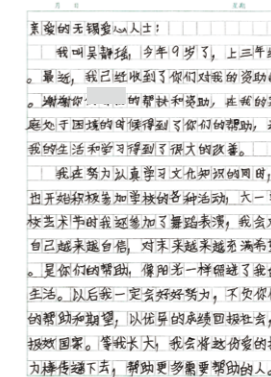 月 日 星期
亲爱的无锡爱心人士：
我叫吴静瑶，今年9岁了，上三年
。最近，我已经收到了你们对我的资助
。谢谢你 的帮扶和资助，在我的
庭处于困境的时候得到了你们的帮助，
我的生活和学习得到了很大的改善。
我在努力认真学习文化知识的同时，
也开始积极参加学校的各种活动，大一
校艺术节的我还参加了舞蹈表演，我会
自己越来越自信，对未来越来越充满希
。是你们的帮助，像阳光一样照进了我
生活。以后我一定会好好努力，不负你
的帮助和期望，以优异的成绩回报社会，
报效国家。等我长大，我会将这份爱的
力棒传递下去，帮助更多需要帮助的人。